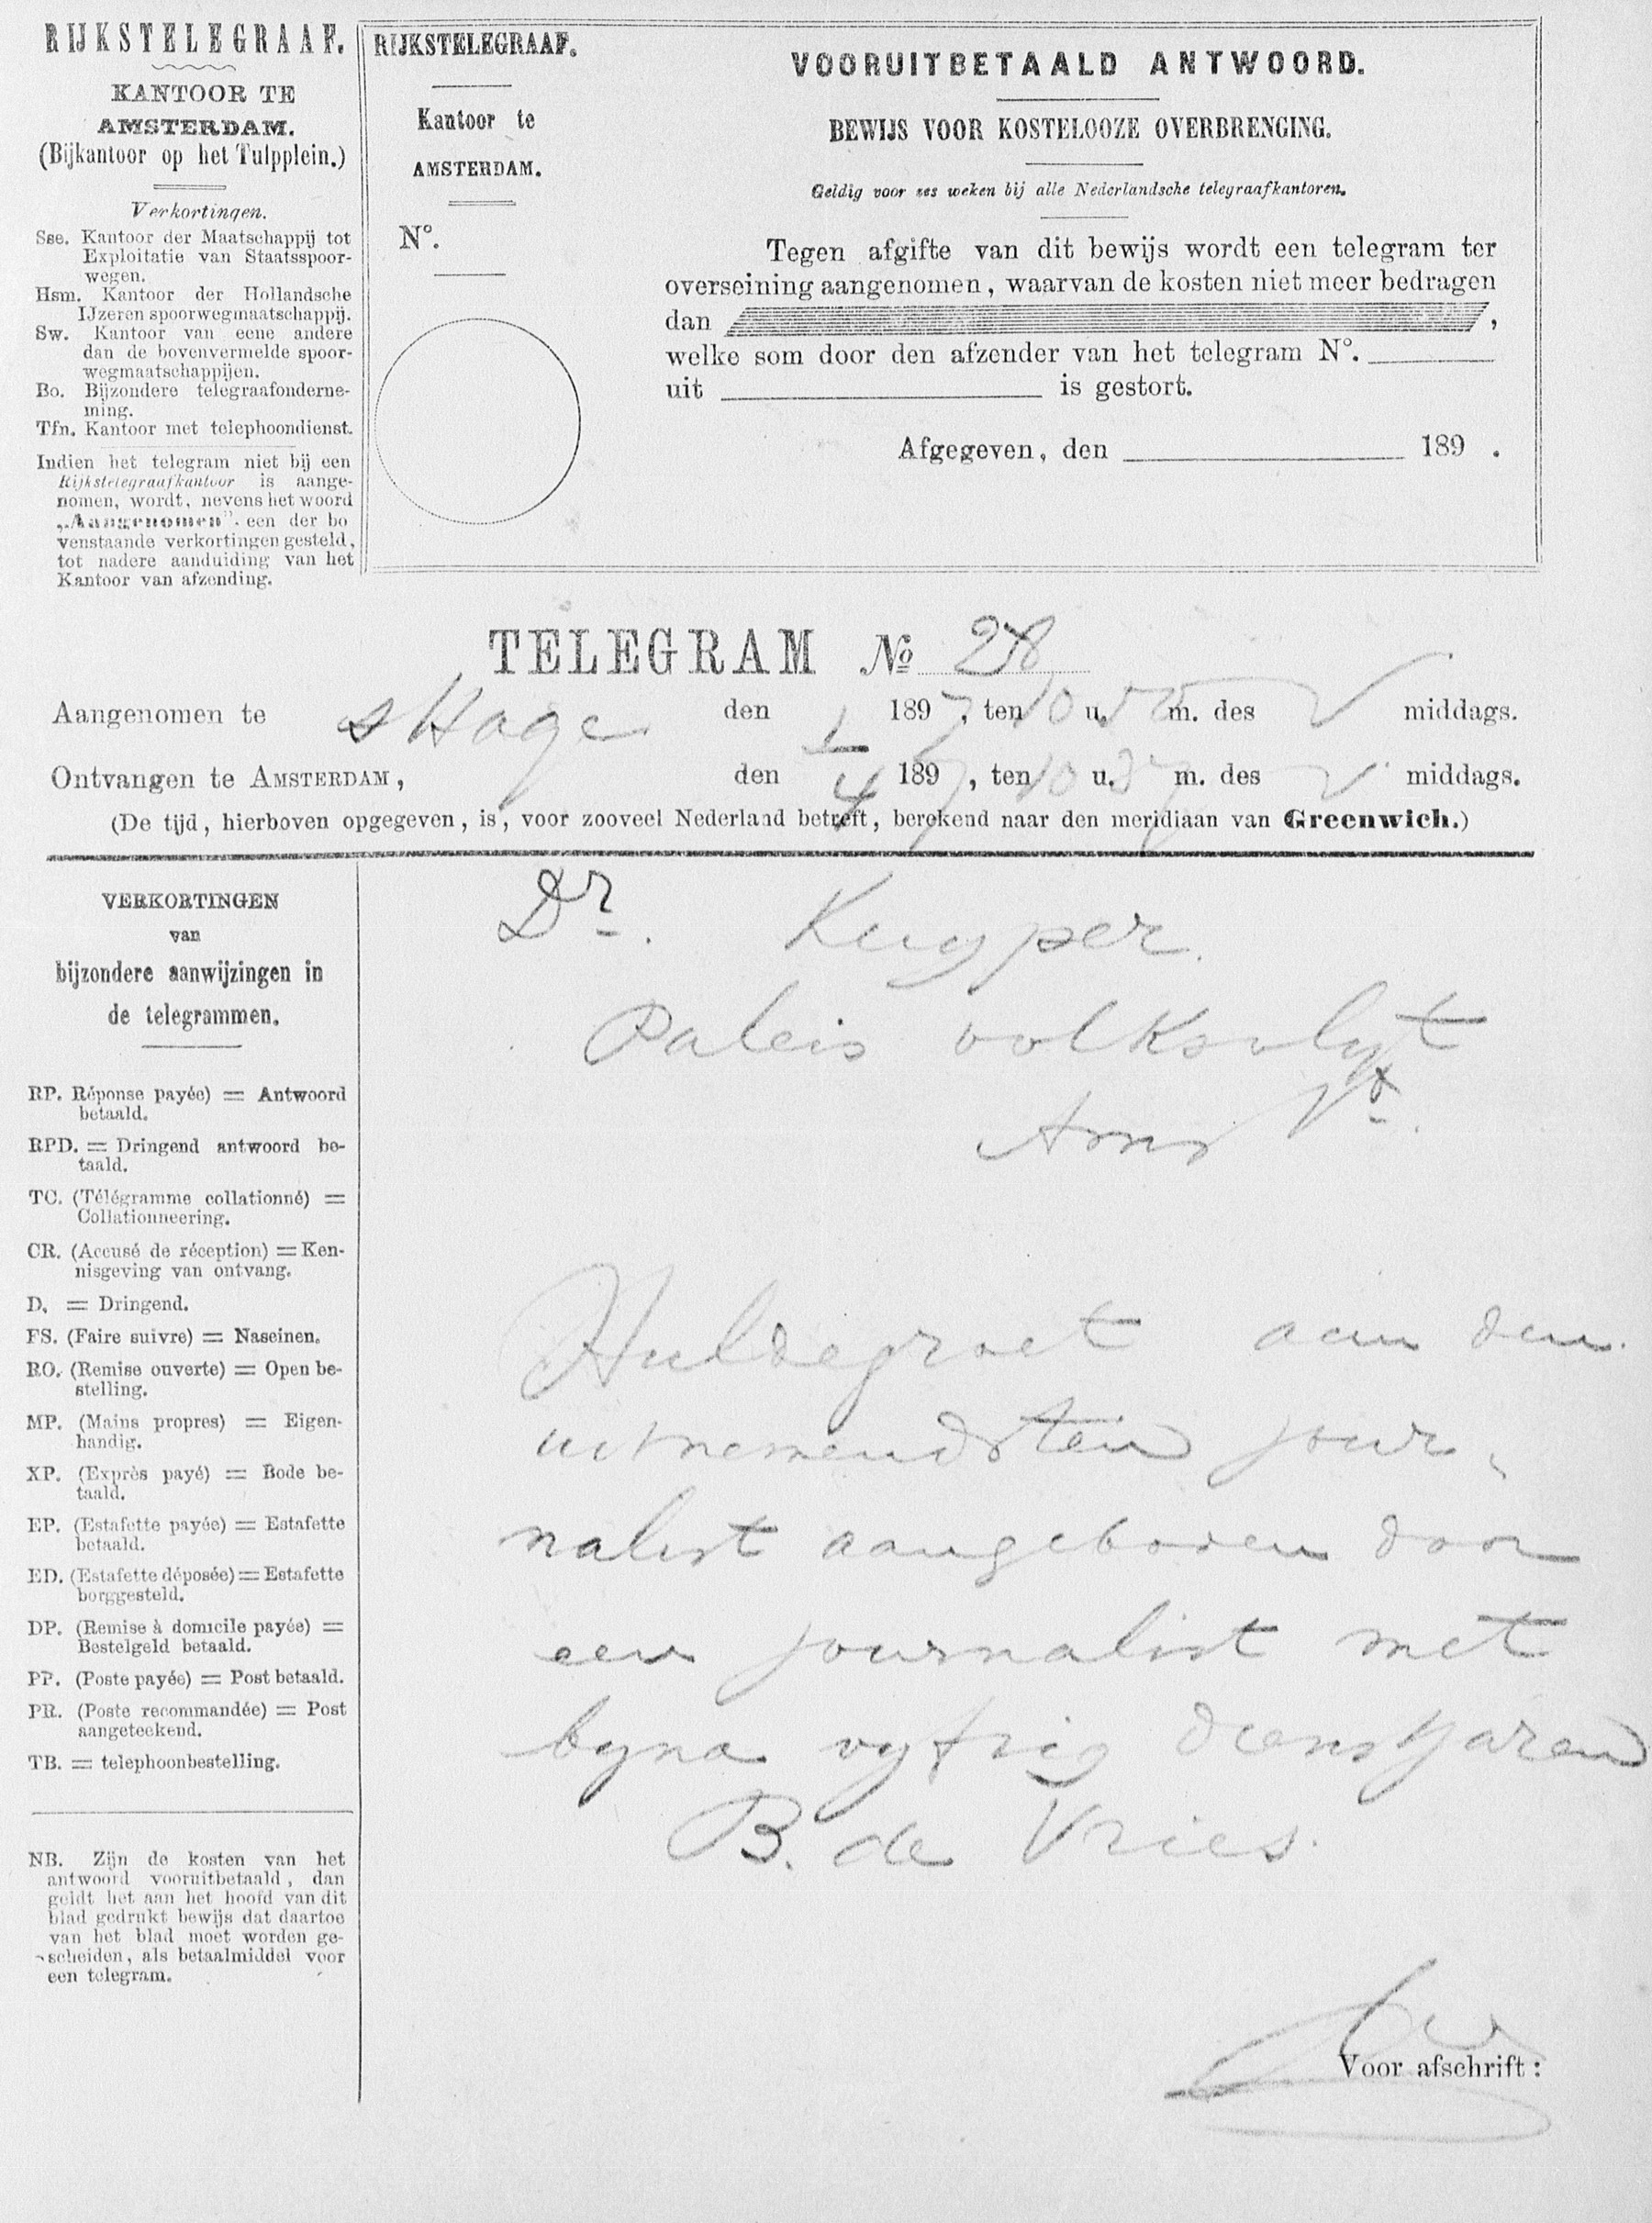 RIJKSTELEGRAAF.
KANTOOR TE
AMSTERDAM.
(Bijkantoor op het Tulpplein.)
Verkortingen.
Sse. Kantoor der Maatschappij tot
Exploitatie van Staatsspoor-
wegen.
Hsm. Kantoor der Hollandsche
IJzeren spoorwegmaatschappij.
Sw. Kantoor van eene andere
dan de bovenvermelde spoor-
wegmaatschappijen.
Bo. Bijzondere telegraafonderne-
ming.
Tfn. Kantoor met telephoondienst.
Indien het telegram niet bij een
Rijkstelegraafkantoor is aange-
nomen, wordt, nevens het woord
„Aangenomen" een der bo
venstaande verkortingen gesteld,
tot nadere aanduiding van het
Kantoor van afzending.
RIJKSTELEGRAAF.
Kantoor te
AMSTERDAM.
N°.
VOORUITBETAALD ANTWOORD.
BEWIJS VOOR KOSTELOOZE OVERBRENGING.
Geldig voor zes weken bij alle Nederlandsche telegraafkantoren.
Tegen afgifte van dit bewijs wordt een telegram ter
overseining aangenomen, waarvan de kosten niet meer bedragen
dan ,
welke som door den afzender van het telegram N°.
uit is gestort.
Afgegeven, den 189 .
TELEGRAM No 28
Aangenomen te s Hage den 1 1897, ten 10 u. m. des V middags.
Ontvangen te AMSTERDAM, den 4 1897, ten 10 u. 37 m. des V middags.
(De tijd, hierboven opgegeven, is, voor zooveel Nederland betreft, berekend naar den meridiaan van Greenwich.)
VERKORTINGEN
van
bijzondere aanwijzingen in
de telegrammen.
RP. Réponse payée) = Antwoord
betaald.
RPD. = Dringend antwoord be-
taald.
TC. (Télégramme collationné) =
Collationneering.
CR. (Accusé de réception) = Ken-
nisgeving van ontvang.
D. = Dringend.
FS. (Faire suivre) = Naseinen.
RO. (Remise ouverte) = Open be-
stelling.
MP. (Mains propres) = Eigen-
handig.
XP. (Exprès payé) = Bode be-
taald.
EP. (Estafette payée) = Estafette
betaald.
ED. (Estafette déposée) = Estafette
borggesteld.
DP. (Remise à domicile payée) =
Bestelgeld betaald.
PP. (Poste payée) = Post betaald.
PR. (Poste recommandée) = Post
aangeteekend.
TB. = telephoonbestelling.
NB. Zijn de kosten van het
antwoord vooruitbetaald, dan
geldt het aan het hoofd van dit
blad gedrukt bewijs dat daartoe
van het blad moet worden ge-
scheiden, als betaalmiddel voor
een telegram.
Dr. Kuyper.
Paleis volksvlyt
Ams
Huldegroet aan den
uitnemendsten jour-
nalist aangeboden door
een journalist met
byna vyftig dienstjaren
B. de Vries.
Voor afschrift: